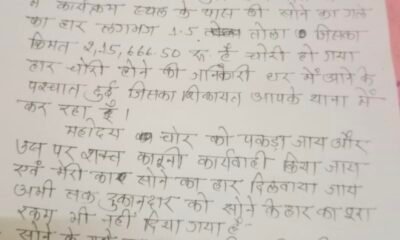 में कार्यक्रम स्थल के पास ही सोने का गले
का हार लगभग 1.5 तोला जिसका
किमत 2,15,666.50 रू. है चोरी हो गया
हार चोरी होने की जानकारी घर में आने के
पश्चात हुई जिसका शिकायत आपके थाना में
कर रहा हूँ।
महोदय चोर को पकड़ा जाय और
उस पर शक्त कानूनी कार्यवाही किया जाय
एवं मेरी सोने का हार दिलवाया जाय
अभी तक दुकानदार को सोने के हार का पूरा
रकम भी नहीं दिया गया है
सोने के